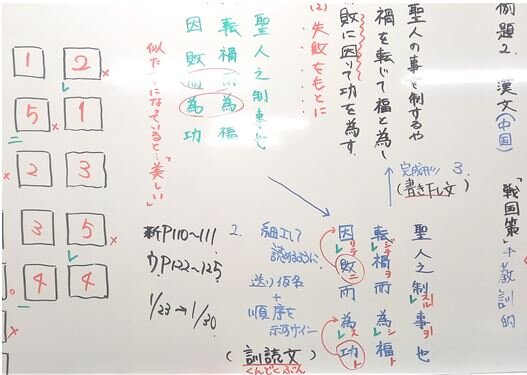 例題2. 漢文(中国)
「戦国策」+教訓的
聖人の事を制するや
禍を転じて福と為し
敗に因りて功を為す。
(2) 失敗をもとに
聖人之制事也
転禍而為福
因敗而為功
になっていると
美しい
完成形!! 3.
(書き下し文)
聖人之制スル事ヲ也
転ジテ禍ヲ而為シ福ト
因リテ敗ニ而為ス功ト
2. 細工して
読めるように
送り仮名
+
順序を
示すサイン
(訓読文)
くんどくぶん
新P110~111
P122~125
1/23→1/30
1 2
5 1
2 3
3 5
4 4